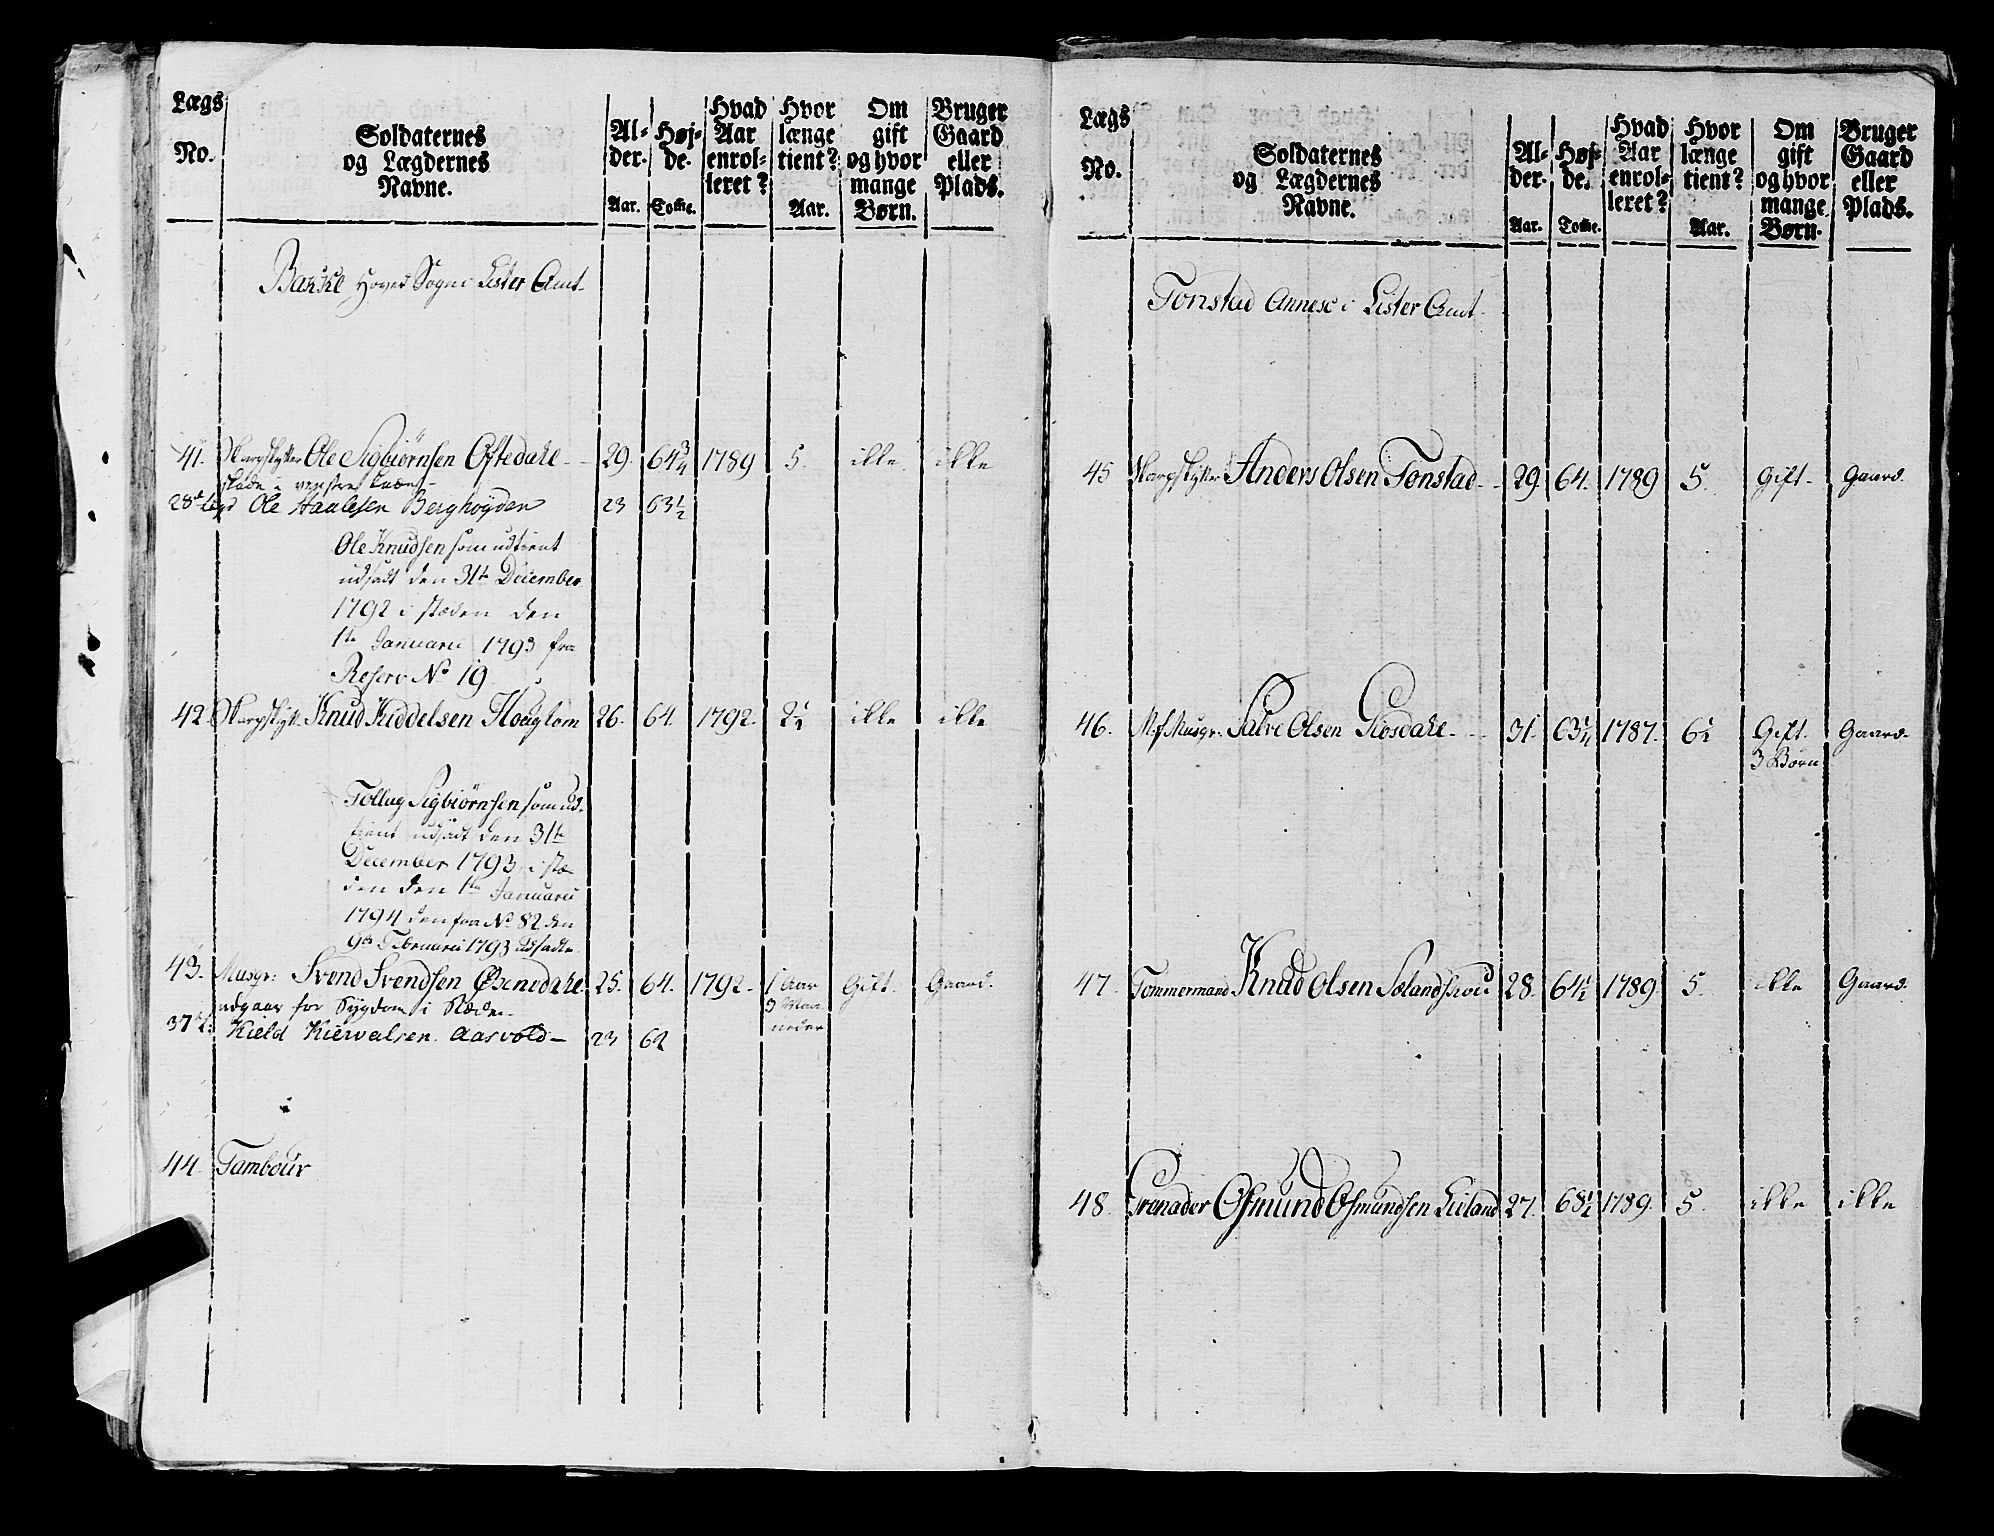 Lægs No. | Soldaternes og Lægdernes Navne. | Al-der. Aar. | Høj-de. Tome. | Hvad Aar enrol-leret? | Hvor længe tient? Aar. | Om gift og hvor mange Børn. | Bruger Gaard eller Plads.
Bakke Hoved Sogn i Lister Amt.
41. Skarpskytter Ole Sigbiørnsen Øftedahl 29. 64 3/4 1789 5. ikke ikke
skade i venstre
28de Legd Ole Aaulesen Berghøyden 23 63 1/2
Ole Knudsen som udtient
udsadt den 31te December
1792 i stæden den
1te Januarii 1793 fra
Reserv No 19
42. Skarpskytt. Knud Kiddelsen Hougtom 26. 64. 1792. 2 1/2 ikke ikke
Tollag Sigbiørnsen som ud-
tient udsadt den 31te
December 1793, i stæ-
den den 1te Januarii
1794 den fra No 82 den
9de Februarii 1793 udsadte
43. Musqr: Svend Svendsen Øxendahl 25. 64. 1792. 1 Aar Gift. Gaard.
udgaar for Sygdom i Stæden 3 Maa-
neder
37te L. Kield Kierualsen Aasvold 23 62
44. Tambour
Lægs No. | Soldaternes og Lægdernes Navne. | Al-der. Aar. | Høj-de. Tome. | Hvad Aar enrol-leret? | Hvor længe tient? Aar. | Om gift og hvor mange Børn. | Bruger Gaard eller Plads.
Tonstad Annex i Lister Amt.
45 Skarpskytter Anders Olsen Tonstad 29 64. 1789 5. Gift. Gaard.
46. Musqr: Salve Olsen Giosdahl 31. 63 1/4 1787. 6 1/2 Gift. Gaard.
3 Børn
47. Tømmermand Knud Olsen 28. 64 1/2 1789. 5. ikke Gaard.
48. Grenader Osmund Osmundsen Liland 27. 68 1/2 1789. 5. ikke ikke